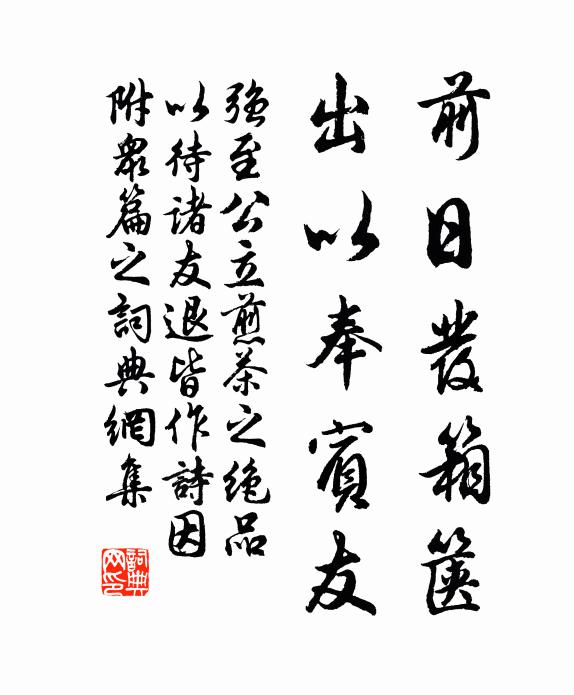 前日發箱篋
出以奉賓友
強至公立煎茶之絶品
以待諸友退皆作詩因
附衆篇之詞典網集
詞典網印